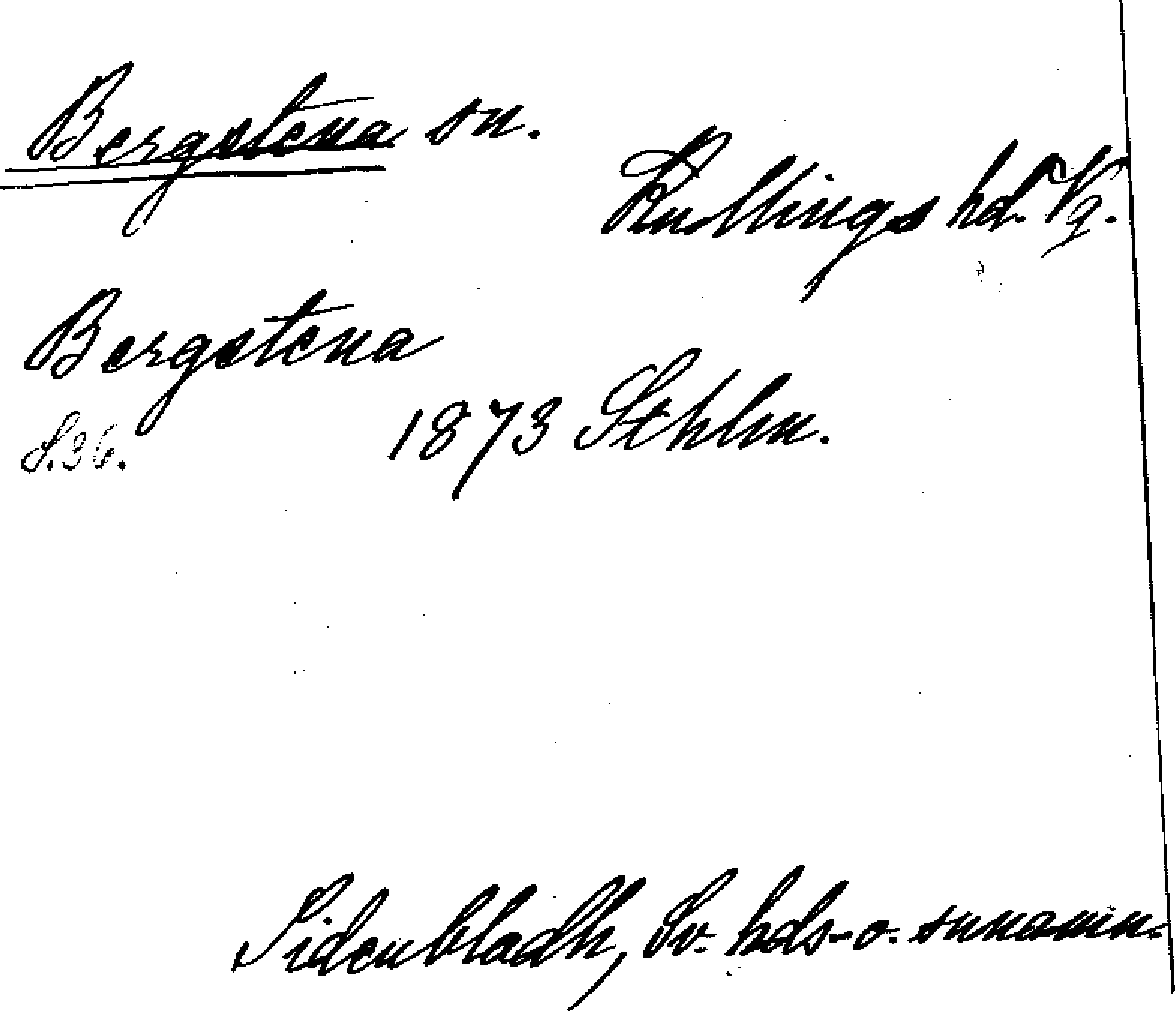 Bergstena sn.
Kullings hd. Vg.
Bergstena
S. 36.
1873 Sthlm.
Sidenbladh, Sv. hds- o. snnamn.